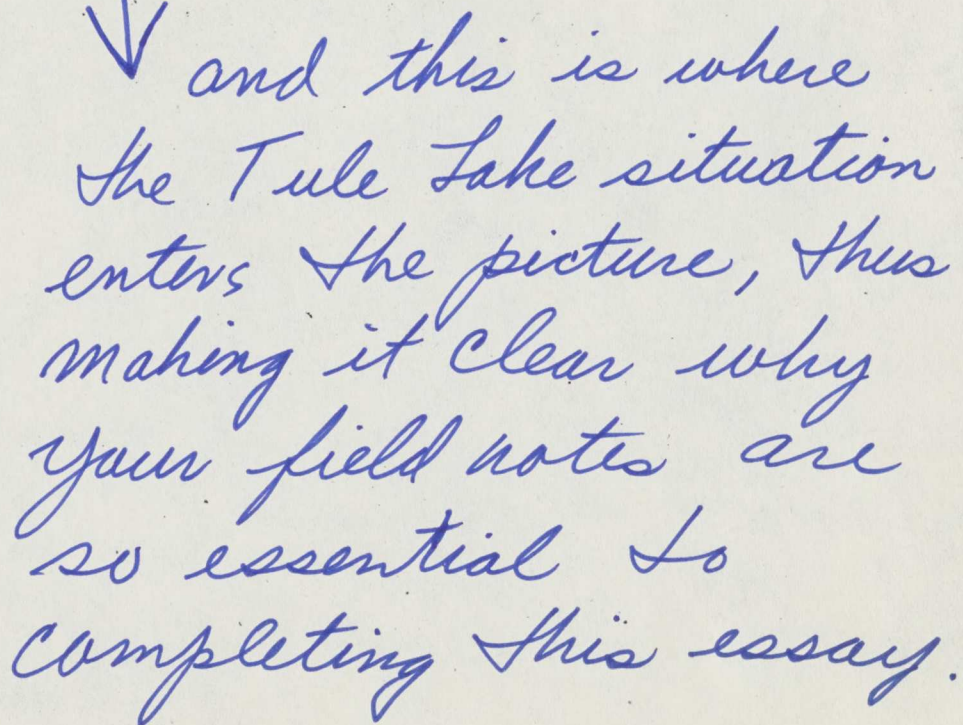 and this is where
the Tule Lake situation
enters the picture, thus
making it clear why
your field notes are
so essential to
completing this essay.